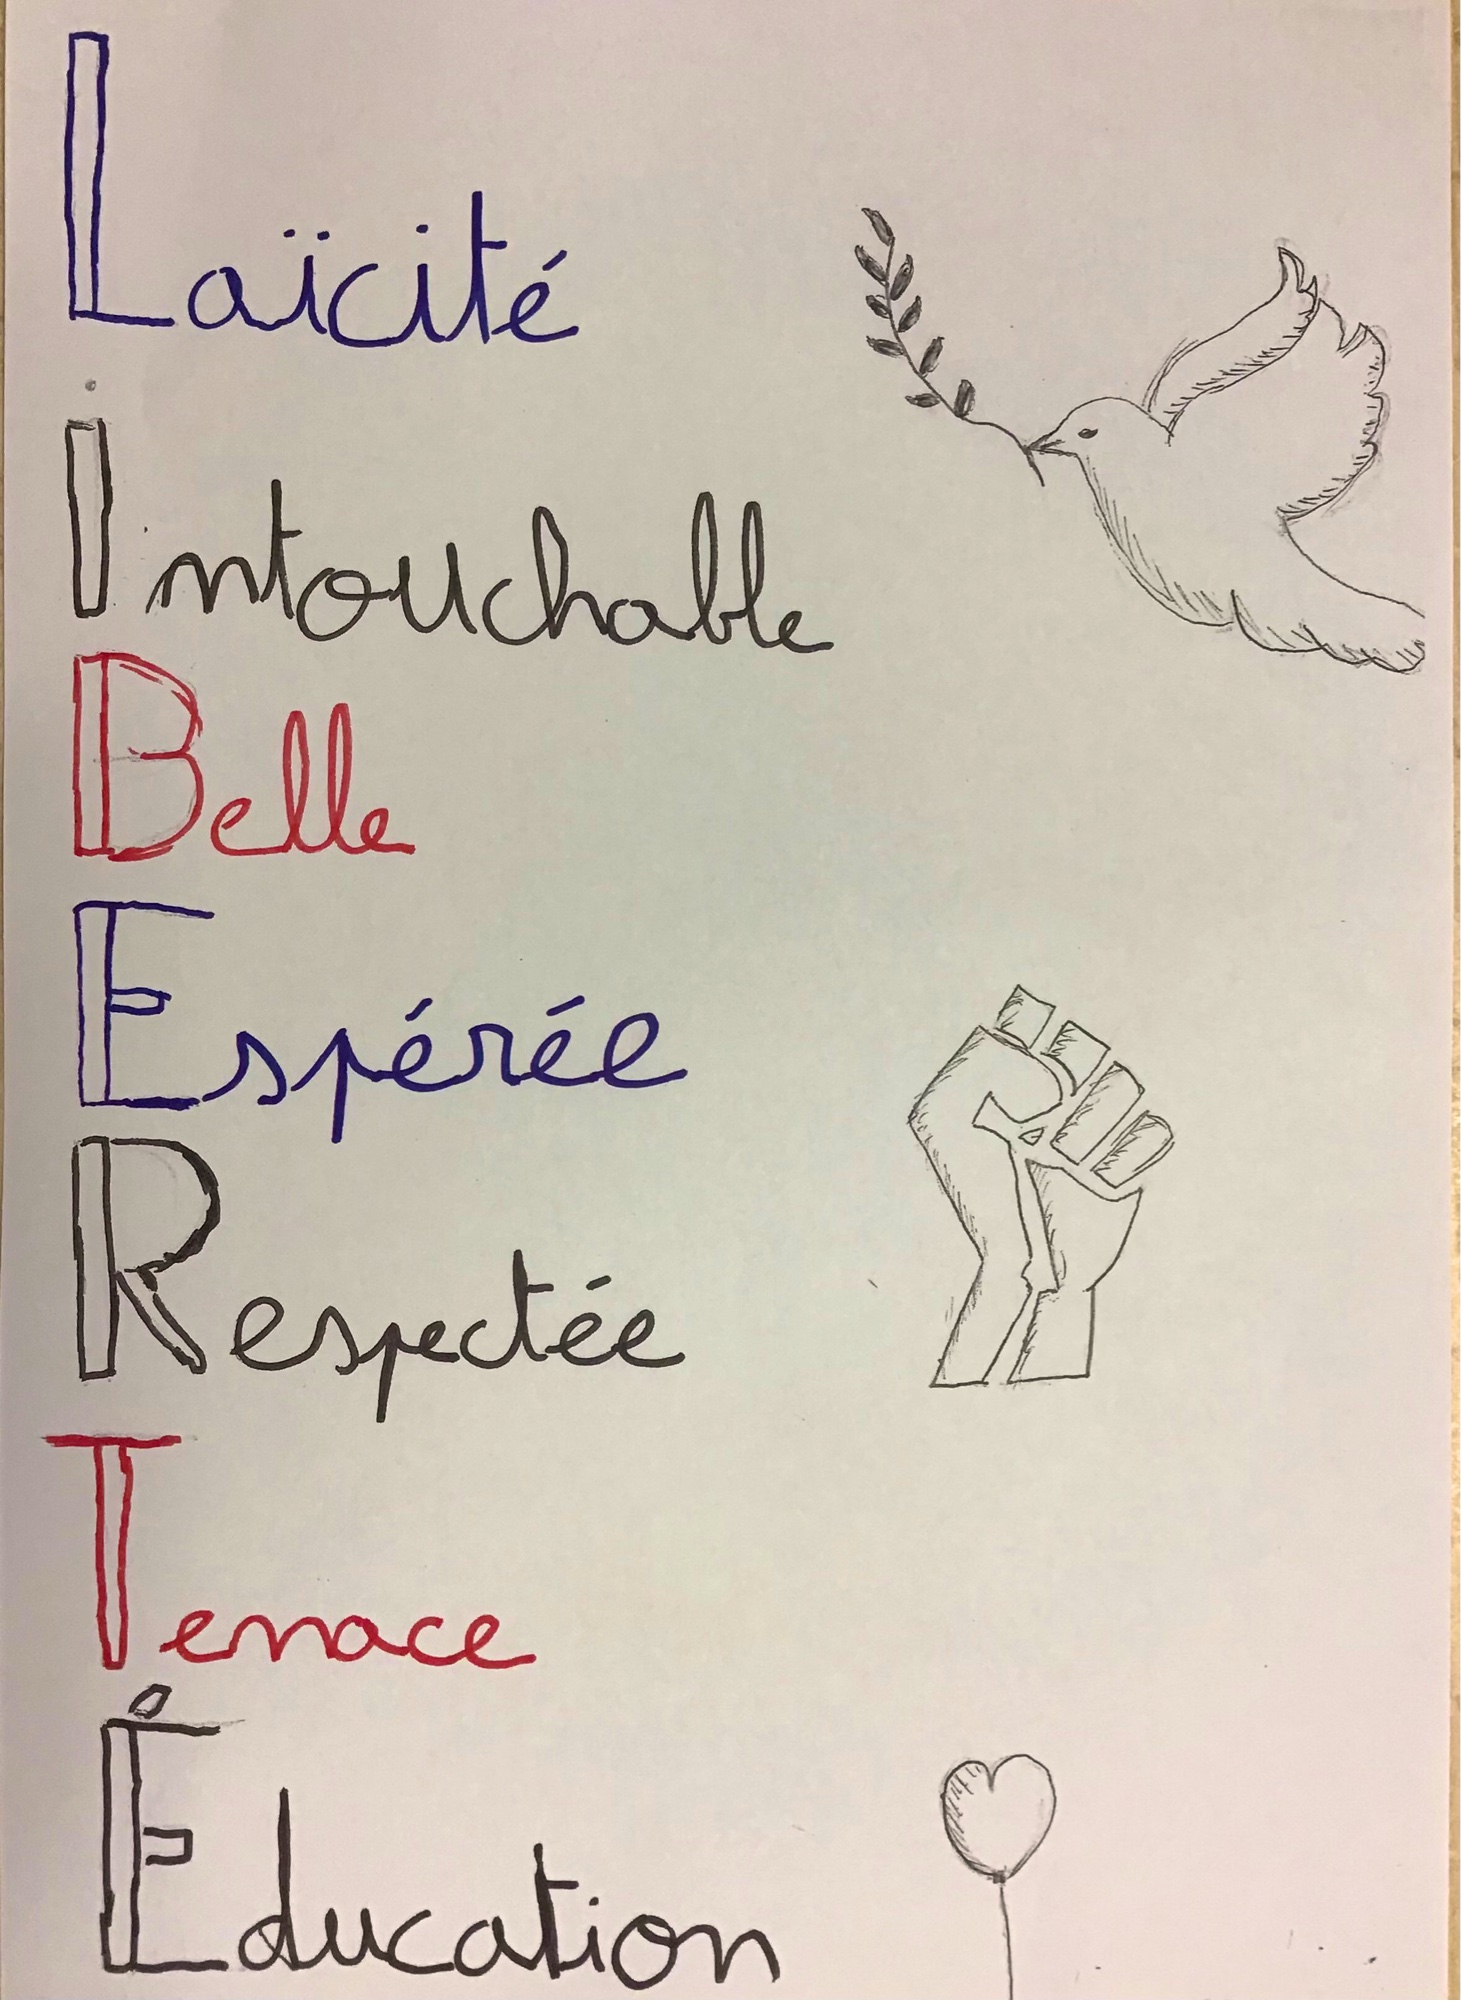 Laïcité
Intouchable
Belle
Espérée
Respectée
Tenace
Éducation